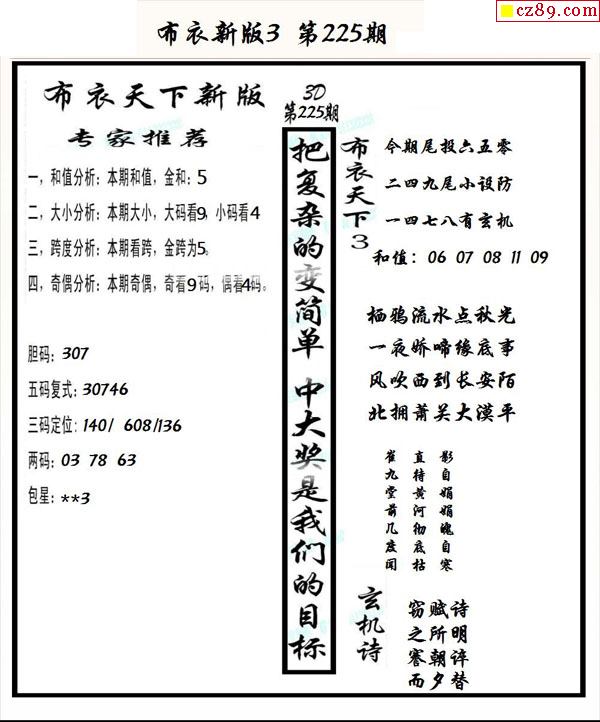 cz89.com
布衣新版3 第225期
布衣天下新版
专家推荐
一，和值分析：本期和值，金和：5
二，大小分析：本期大小，大码看9，小码看4
三，跨度分析：本期看跨，金跨为5。
四，奇偶分析：本期奇偶，奇看9码，偶看4码。
胆码：307
五码复式：30746
三码定位：140/ 608/136
两码：03 78 63
包星：**3
3D
第225期
把复杂的变简单 中大奖是我们的目标
布衣天下3
今期尾投六五零
二四九尾小设防
一四七八有玄机
和值：06 07 08 11 09
栖鸦流水点秋光
一夜娇啼缘底事
风吹西到长安陌
北拥萧关大漠平
崔九堂前几度闻
直待黄河彻底枯
影自娟娟魄自寒
玄机诗
窃赋诗
之所明
謇朝谇
而夕替